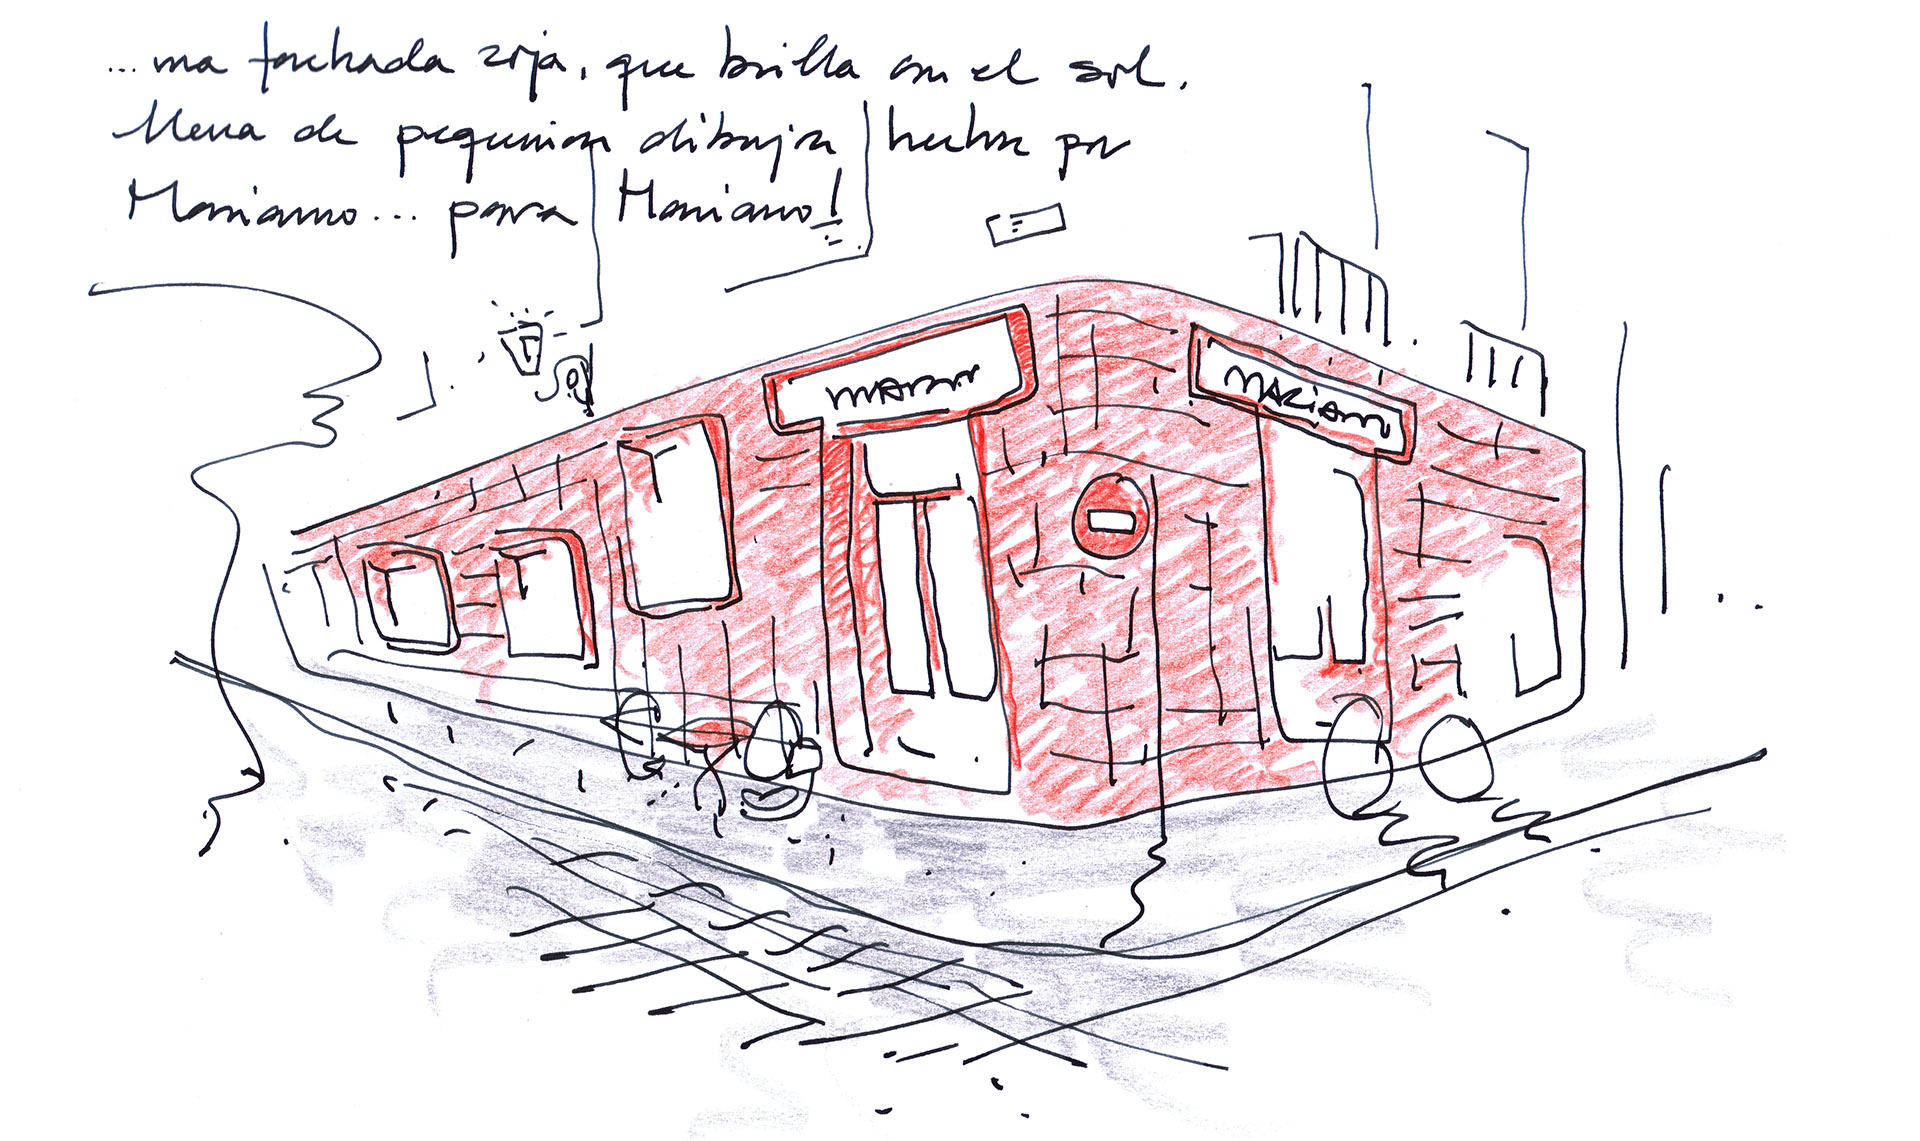 ...una fachada roja, que brilla con el sol.
llena de pequeños dibujos hechos por
Mariano... para Mariano!
MARIANO